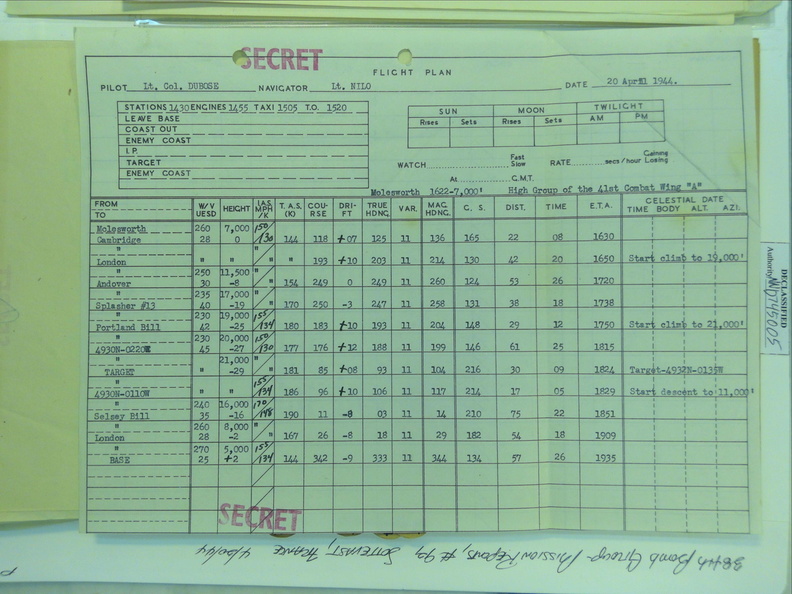 SECRET
FLIGHT PLAN
PILOT Lt. Col. DUBOSE NAVIGATOR Lt. NILO DATE 20 April 1944.
STATIONS 1430 ENGINES 1455 TAXI 1505 T.O. 1520
LEAVE BASE
COAST OUT
ENEMY COAST
I.P.
TARGET
ENEMY COAST
SUN MOON TWILIGHT
Rises Sets Rises Sets AM PM
WATCH Fast Slow RATE secs/hour Gaining Losing
At G.M.T.
Molesworth 1622-7,000' High Group of the 41st Combat Wing "A"
FROM TO W/V UESD HEIGHT I.A.S. MPH /K T. A.S. (K) COU-RSE DRI-FT TRUE HDNG. VAR. MAG. HDNG. G. S. DIST. TIME E.T.A. CELESTIAL DATE TIME BODY ALT. AZI.
Molesworth 260 7,000 150
Cambridge 28 0 /130 144 118 +07 125 11 136 165 22 08 1630
" " " " " 
London " " " " 193 +10 203 11 214 130 42 20 1650 Start climb to 19,000'
" 250 11,500 "
Andover 30 -8 " 154 249 0 249 11 260 124 53 26 1720
" 235 17,000 "
Splasher #13 40 -19 " 170 250 -3 247 11 258 131 38 18 1738
" 230 19,000 155
Portland Bill 42 -25 /134 180 183 +10 193 11 204 148 29 12 1750 Start climb to 21,000'
" 230 20,000 150
4930N-0220W 45 -27 /130 177 176 +12 188 11 199 146 61 25 1815
" 21,000 "
TARGET " -29 " 181 85 +08 93 11 104 216 30 09 1824 Target-4932N-0135W
" 155
4930N-0110W " " /134 186 96 +10 106 11 117 214 17 05 1829 Start descent to 11,000'
" 240 16,000 170
Selsey Bill 35 -16 /148 190 11 -8 03 11 14 210 75 22 1851
" 260 8,000 "
London 28 -2 " 167 26 -8 18 11 29 182 54 18 1909
" 270 5,000 155
BASE 25 +2 /134 144 342 -9 333 11 344 134 57 26 1935
SECRET
DECLASSIFIED
Authority NND745005
384th Bomb Group- Mission Reports, # 92, SOTTEVAST, FRANCE 4/20/44